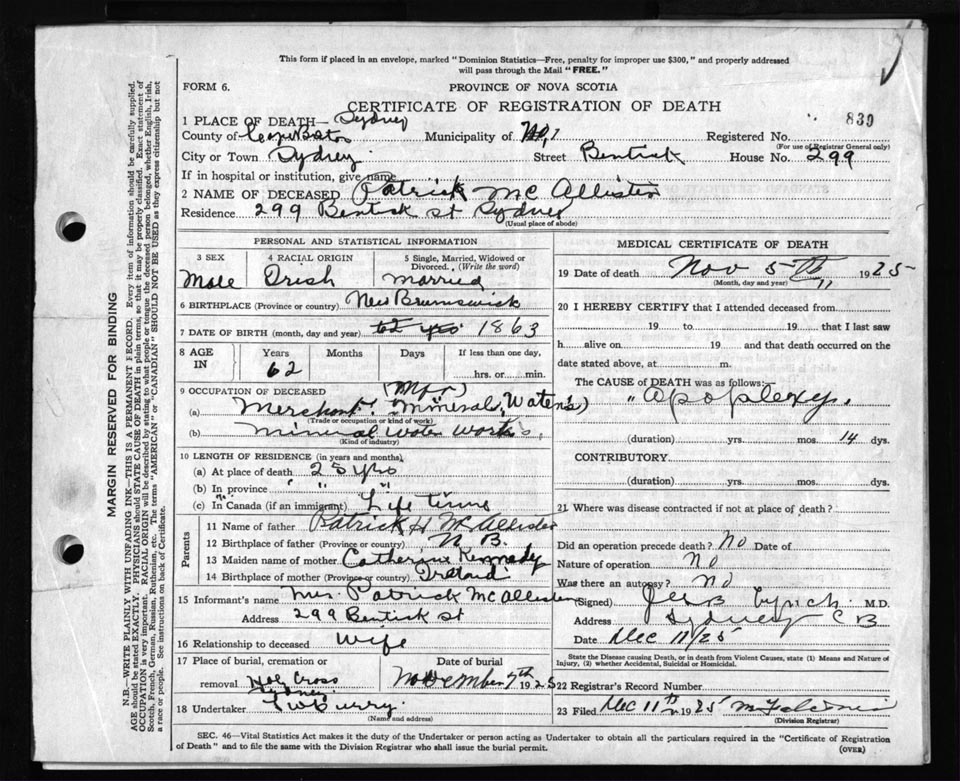 This form if placed in an envelope, marked "Dominion Statistics—Free, penalty for improper use $300," and properly addressed
will pass through the Mail "FREE."
FORM 6.
PROVINCE OF NOVA SCOTIA
CERTIFICATE OF REGISTRATION OF DEATH
1 PLACE OF DEATH— Sydney
830
County of Cape Breton Municipality of No, 1 Registered No.
(For use of Registrar General only)
City or Town Sydney. Street Bentick House No. 299
If in hospital or institution, give name
2 NAME OF DECEASED Patrick McAllister
Residence 299 Bentick st Sydney
(Usual place of abode)
PERSONAL AND STATISTICAL INFORMATION
3 SEX 4 RACIAL ORIGIN 5 Single, Married, Widowed or Divorced. (Write the word)
Male Irish Married
6 BIRTHPLACE (Province or country) New Brunswick
7 DATE OF BIRTH (month, day and year) 62 yrs 1863
8 AGE IN Years Months Days If less than one day,
62 hrs. or min.
9 OCCUPATION OF DECEASED (Mfr)
(a) Merchant, Mineral Waters)
(Trade or occupation or kind of work)
(b) Mineral Water Works,
(Kind of industry)
10 LENGTH OF RESIDENCE (in years and months)
(a) At place of death 25 yrs
(b) In province " " "
(c) In Canada (if an immigrant) Life time
Parents
11 Name of father Patrick H McAllister
12 Birthplace of father (Province or country) N B.
13 Maiden name of mother Catherine Kennedy
14 Birthplace of mother (Province or country) Ireland
15 Informant's name Mrs. Patrick McAllister
Address 299 Bentick st
16 Relationship to deceased Wife
17 Place of burial, cremation or removal Date of burial
Holy Cross Sydney November 7th 1925
18 Undertaker
(Name and address)
MEDICAL CERTIFICATE OF DEATH
19 Date of death Nov 5th 11 1925
(Month, day and year)
20 I HEREBY CERTIFY that I attended deceased from
19 to 19 that I last saw
h alive on 19 and that death occurred on the
date stated above, at m.
The CAUSE of DEATH was as follows:
"Apoplexy.
(duration) yrs. mos. 14 dys.
CONTRIBUTORY.
(duration) yrs. mos. dys.
21 Where was disease contracted if not at place of death?
Did an operation precede death? No Date of
Nature of operation No
Was there an autopsy? No
(Signed) Lynch M.D.
Address Sydney C B
Date Dec 11/25
State the Disease causing Death, or in death from Violent Causes, state (1) Means and Nature of
Injury, (2) whether Accidental, Suicidal or Homicidal.
22 Registrar's Record Number
23 Filed Dec 11th 1925
(Division Registrar)
SEC. 46—Vital Statistics Act makes it the duty of the Undertaker or person acting as Undertaker to obtain all the particulars required in the "Certificate of Registration
of Death" and to file the same with the Division Registrar who shall issue the burial permit.
(OVER)
MARGIN RESERVED FOR BINDING
N.B.—WRITE PLAINLY WITH UNFADING INK—THIS IS A PERMANENT RECORD. Every item of information should be carefully supplied.
AGE should be stated EXACTLY. PHYSICIANS should STATE CAUSE OF DEATH in plain terms, so that it may be properly classified. Exact statement of
OCCUPATION is very important. RACIAL ORIGIN will be described by stating to what people or tongue the deceased person belonged, whether English, Irish,
Scotch, French, German, Russian, Ruthenian, etc. The terms "AMERICAN" or "CANADIAN" SHOULD NOT BE USED as they express citizenship but not
a race or people. See instructions on back of Certificate.